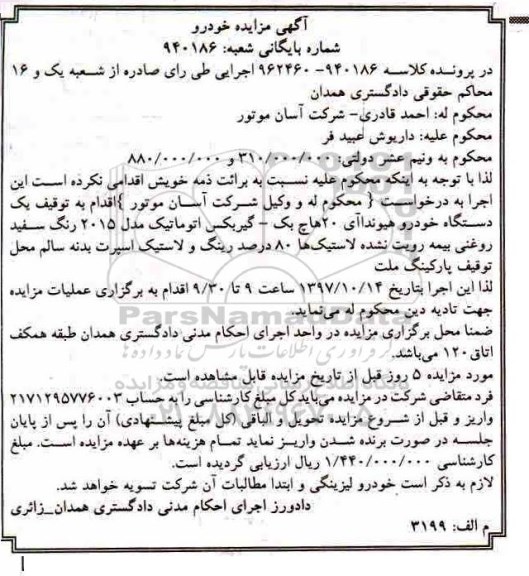 آگهی مزایده خودرو
شماره بایگانی شعبه: ۹۴۰۱۸۶
در پرونده کلاسه ۹۴۰۱۸۶- ۹۶۲۴۶۰ اجرایی طی رای صادره از شعبه یک و ۱۶
محاکم حقوقی دادگستری همدان
محکوم له: احمد قادری- شرکت آسان موتور
محکوم علیه: داریوش عبید فر
محکوم به ونیم عشر دولتی: ۳۱۰/۰۰۰/۰۰۰ و ۸۸۰/۰۰۰/۰۰۰
لذا با توجه به اینکه محکوم علیه نسبت به برائت ذمه خویش اقدامی نکرده است این
اجرا به درخواست { محکوم له و وکیل شرکت آسان موتور }اقدام به توقیف یک
دستگاه خودرو هیوندای آی ۲۰هاچ بک – گیربکس اتوماتیک مدل ۲۰۱۵ رنگ سفید
روغنی بیمه رویت نشده لاستیک‌ها ۸۰ درصد رینگ و لاستیک اسپرت بدنه سالم محل
توقیف پارکینگ ملت
لذا این اجرا بتاریخ ۱۳۹۷/۱۰/۱۴ ساعت ۹ تا ۹/۳۰ اقدام به برگزاری عملیات مزایده
جهت تادیه دین محکوم له می‌نماید.
ضمنا محل برگزاری مزایده در واحد اجرای احکام مدنی دادگستری همدان طبقه همکف
اتاق ۱۲۰ می‌باشد.
مورد مزایده ۵ روز قبل از تاریخ مزایده قابل مشاهده است.
فرد متقاضی شرکت در مزایده می‌باید کل مبلغ کارشناسی را به حساب ۲۱۷۱۲۹۵۷۷۶۰۰۳
واریز و قبل از شروع مزایده تحویل و الباقی (کل مبلغ پیشنهادی) آن را پس از پایان
جلسه در صورت برنده شدن واریز نماید تمام هزینه‌ها بر عهده مزایده است. مبلغ
کارشناسی ۱/۴۴۰/۰۰۰/۰۰۰ ریال ارزیابی گردیده است.
لازم به ذکر است خودرو لیزینگی و ابتدا مطالبات آن شرکت تسویه خواهد شد.
دادورز اجرای احکام مدنی دادگستری همدان_زائری
م الف: ۳۱۹۹
ParsNamadData